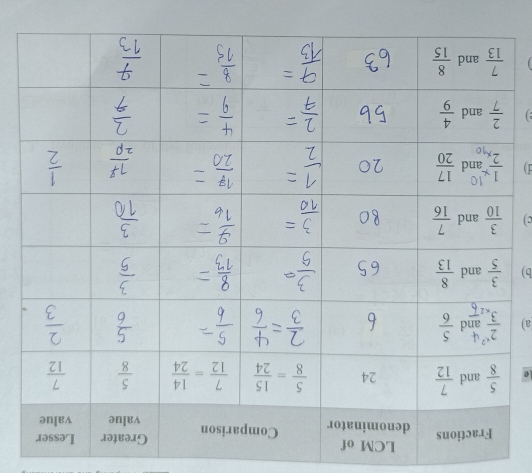 Fractions LCM of denominator Comparison Greater value Lesser value
5/8 and 7/12 24 5/8 = 15/24 7/12 = 14/24 5/8 7/12
a) 2/3 and 5/6 6 2/3 = 4/6 5/6 = 5/6 2/3
b) 3/5 and 8/13 65 3/5 = 8/13 = 3/5
c) 3/10 and 7/16 80 3/10 = 7/16 = 3/10
d) 1/2 and 17/20 20 1/2 = 17/20 = 17/20 1/2
e) 2/7 and 4/9 56 2/7 = 4/9 = 2/7
) 7/13 and 8/15 63 7/13 = 8/15 = 7/13